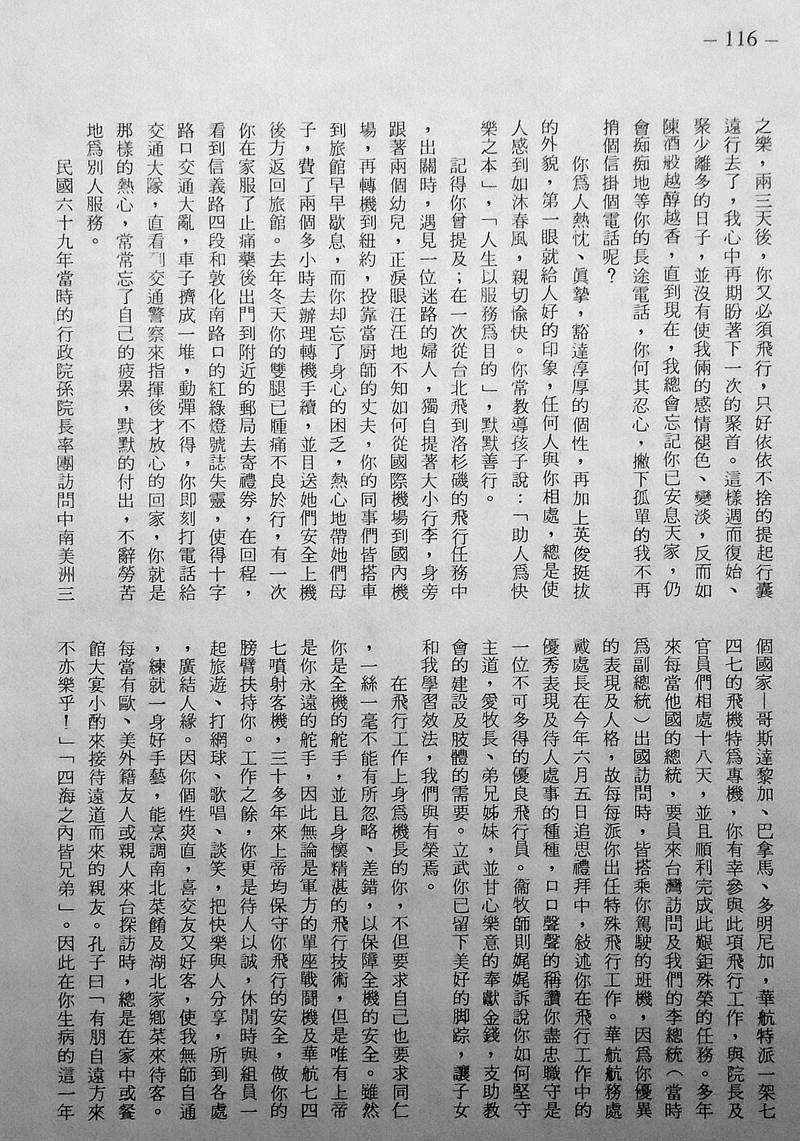 – 116 –
之樂，兩三天後，你又必須飛行，只好依依不捨的提起行囊
遠行去了，我心中再期盼著下一次的聚首。這樣週而復始、
聚少離多的日子，並沒有使我倆的感情褪色、變淡，反而如
陳酒般越醇越香，直到現在，我總會忘記你已安息天家，仍
會痴痴地等你的長途電話，你何其忍心，撇下孤單的我不再
捎個信掛個電話呢？
你爲人熱忱、眞摯，豁達淳厚的個性，再加上英俊挺拔
的外貌，第一眼就給人好的印象，任何人與你相處，總是使
人感到如沐春風，親切愉快。你常教導孩子說：「助人爲快
樂之本」，「人生以服務爲目的」，默默善行。
記得你曾提及；在一次從台北飛到洛杉磯的飛行任務中
，出關時，遇見一位迷路的婦人，獨自提著大小行李，身旁
跟著兩個幼兒，正淚眼汪汪地不知如何從國際機場到國內機
場，再轉機到紐約，投靠當厨師的丈夫，你的同事們皆搭車
到旅館早早歇息，而你却忘了身心的困乏，熱心地帶她們母
子，費了兩個多小時去辦理轉機手續，並目送她們安全上機
後方返回旅館。去年冬天你的雙腿已腫痛不良於行，有一次
你在家服了止痛藥後出門到附近的郵局去寄禮券，在回程，
看到信義路四段和敦化南路口的紅綠燈號誌失靈，使得十字
路口交通大亂，車子擠成一堆，動彈不得，你即刻打電話給
交通大隊，直看 交通警察來指揮後才放心的回家，你就是
那樣的熱心，常常忘了自己的疲累，默默的付出，不辭勞苦
地爲別人服務。
民國六十九年當時的行政院孫院長率團訪問中南美洲三
個國家—哥斯達黎加、巴拿馬、多明尼加，華航特派一架七
四七的飛機特爲專機，你有幸參與此項飛行工作，與院長及
官員們相處十八天，並且順利完成此艱鉅殊榮的任務。多年
來每當他國的總統，要員來台灣訪問及我們的李總統（當時
爲副總統）出國訪問時，皆搭乘你駕駛的班機，因爲你優異
的表現及人格，故每每派你出任特殊飛行工作。華航航務處
戴處長在今年六月五日追思禮拜中，敍述你在飛行工作中的
優秀表現及待人處事的種種，口口聲聲的稱讚你盡忠職守是
一位不可多得的優良飛行員。衞牧師則娓娓訴說你如何堅守
主道，愛牧長、弟兄姊妹，並甘心樂意的奉獻金錢，支助教
會的建設及肢體的需要。立武你已留下美好的脚踪，讓子女
和我學習效法，我們與有榮焉。
在飛行工作上身爲機長的你，不但要求自己也要求同仁
，一絲一毫不能有所忽略、差錯，以保障全機的安全。雖然
你是全機的舵手，並且身懷精湛的飛行技術，但是唯有上帝
是你永遠的舵手，因此無論是軍方的單座戰鬪機及華航七四
七噴射客機，三十多年來上帝均保守你飛行的安全，做你的
膀臂扶持你。工作之餘，你更是待人以誠，休閒時與組員一
起旅遊、打網球、歌唱、談笑，把快樂與人分享，所到各處
，廣結人緣。因你個性爽直，喜交友又好客，使我無師自通
，練就一身好手藝，能烹調南北菜餚及湖北家鄉菜來待客。
每當有歐、美外籍友人或親人來台探訪時，總是在家中或餐
館大宴小酌來接待遠道而來的親友。孔子曰「有朋自遠方來
不亦樂乎！」「四海之內皆兄弟」。因此在你生病的這一年